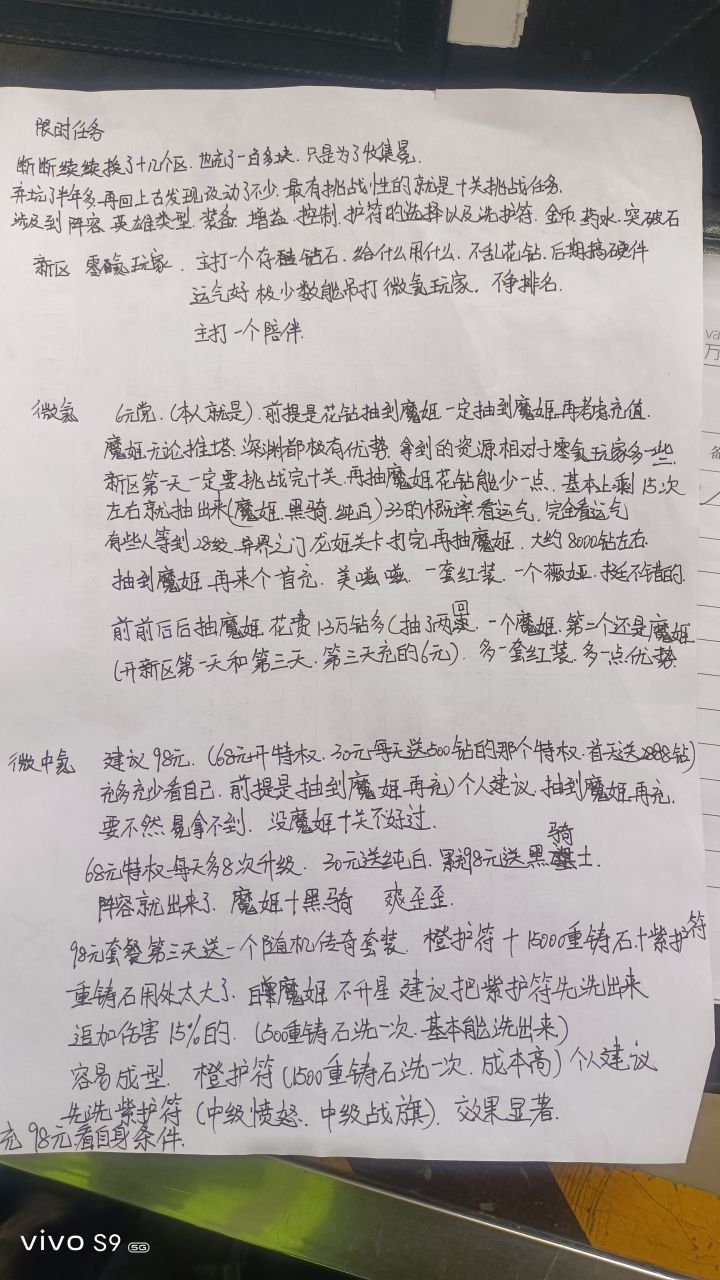 限时任务
断断续续换了十几个区，也充了一百多块，只是为了收集晃，
弃坑了半年多，再回上古发现改动了不少，最有挑战性的就是十关挑战任务，
涉及到 阵容，英雄类型，装备，增益，控制，护符的选择以及洗护符，金币，药水，突破石
新区 零氪玩家， 主打一个存 钻石，给什么用什么，不乱花钻，后期搞硬件
运气好 极少数能吊打微氪玩家。不争排名，
主打一个陪伴，
微氪 6元党，(本人就是)，前提是花钻抽到魔姬，一定抽到魔姬，再考虑充值，
魔姬无论推塔，深渊都极有优势，拿到的资源相对于零氪玩家多一些，
新区第一天一定要挑战完十关，再抽魔姬花钻能少一点，基本上剩15次
左右就抽出来(魔姬，黑骑，纯白)33的概率看运气，完全看运气
有些人等到28级，异界之门 龙姬关卡打完，再抽魔姬，大约8000钻左右，
抽到魔姬，再来个首充，美嗞嗞，一套红装，一个薇娅，挺不错的，
前前后后抽魔姬 花费1.3万钻多(抽了两回，一个魔姬，第二个还是魔姬
(开新区第一天和第三天，第三天充的6元)，多一套红装，多一点优势，
微中氪 建议98元，(68元开特权，30元每天送500钻的那个特权，首天送2888钻)
充多充少看自己，前提是抽到魔姬再充)个人建议，抽到魔姬再充，
要不然晃拿不到，没魔姬十关不好过，
68元特权每天多8次升级，30元送纯白，累充98元送黑骑士，
阵容就出来了，魔姬十黑骑 爽歪歪，
98元套餐第三天送一个随机传奇套装，橙护符＋15000重铸石＋紫护符
重铸石用处太大了， 魔姬不升星 建议把紫护符先洗出来
追加伤害15%的，(500重铸石洗一次，基本能洗出来)
容易成型，橙护符(1500重铸石洗一次，成本高)个人建议
先洗紫护符(中级愤怒，中级战旗)，效果显著，
充98元，看自身条件，
vivo S9 5G